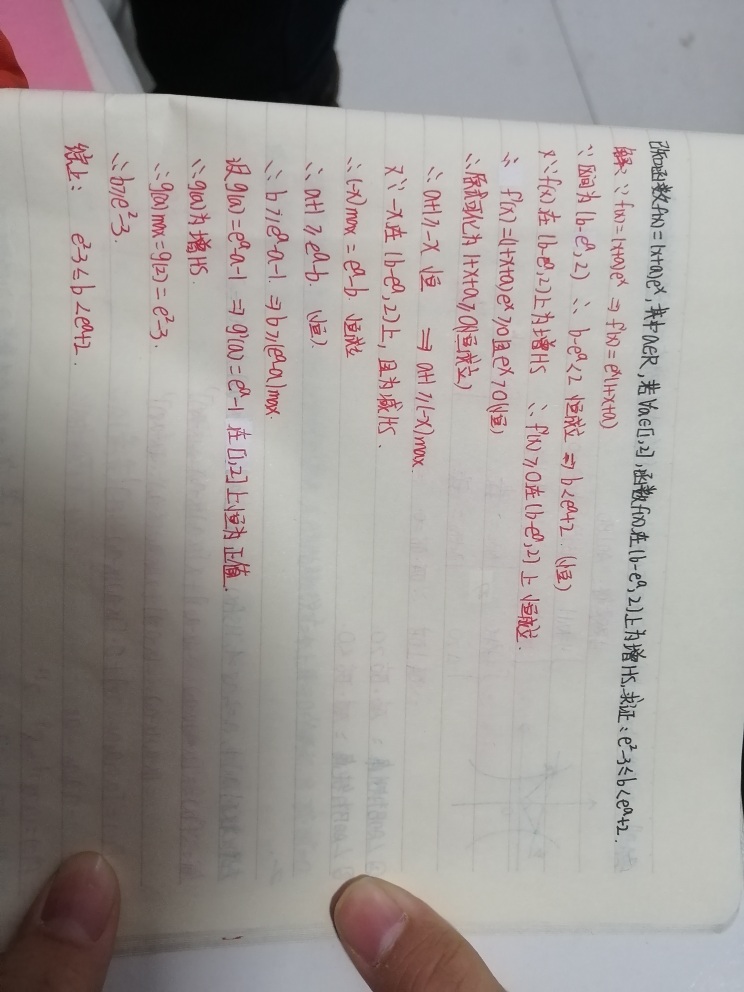 已知函数f(x)=(x+a)eˣ,其中a∈R,若∀a∈[1,2],函数f(x)在(b-eᵃ,2)上为增HS,求证:e²-3≤b<eᵃ+2.
解:∵f(x)=(x+a)eˣ ⇒ f'(x)=eˣ(1+x+a)
∵区间为(b-eᵃ,2) ∴ b-eᵃ<2 恒成立 ⇒ b<eᵃ+2 (恒)
又∵f(x)在(b-eᵃ,2)上为增HS ∴ f'(x)≥0在(b-eᵃ,2)上恒成立.
∵ f'(x)=(1+x+a)eˣ≥0且eˣ>0(恒)
∴原式可化为1+x+a≥0(恒成立)
∴a+1≥-x 恒 ⇒ a+1≥(-x)max
又∵-x在(b-eᵃ,2)上,且为减HS.
∴(-x)max=eᵃ-b 恒成立
∴a+1≥eᵃ-b (恒).
∴b≥eᵃ-a-1. ⇒ b≥(eᵃ-a)max.
设g(a)=eᵃ-a-1 ⇒ g'(a)=eᵃ-1 在[1,2]上恒为正值.
∴g(a)为增HS.
∴g(a)max=g(2)=e²-3.
∴b≥e²-3.
综上: e²-3≤b<eᵃ+2.